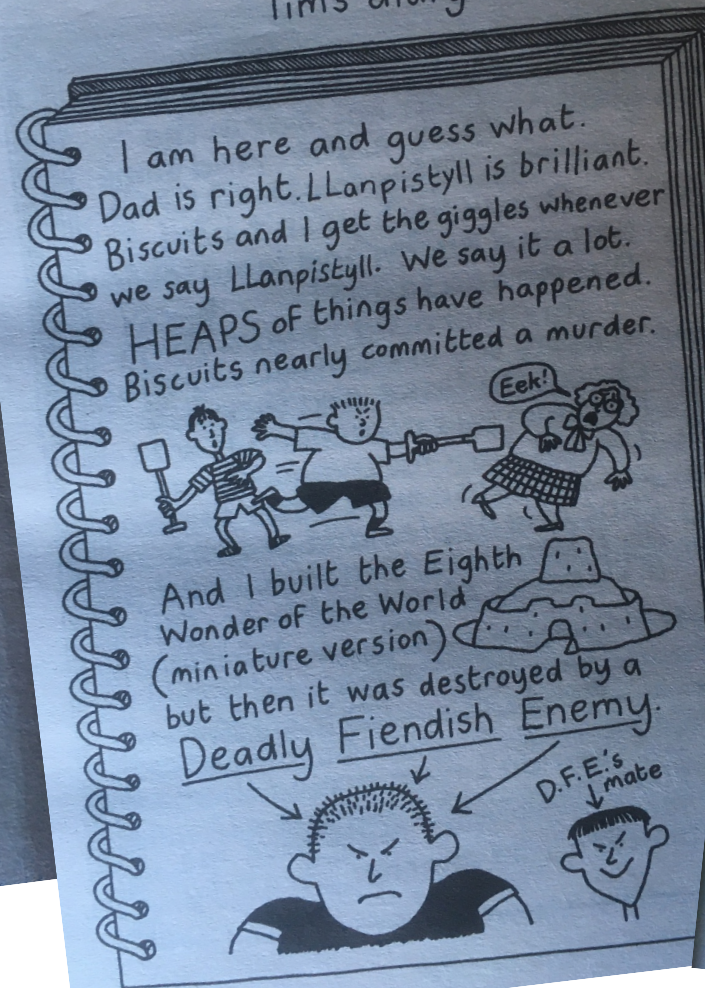 I am here and guess what.
Dad is right. LLanpistyll is brilliant.
Biscuits and I get the giggles whenever
we say LLanpistyll. We say it a lot.
HEAPS of things have happened.
Biscuits nearly committed a murder.
Eek!
And I built the Eighth
Wonder of the World
(miniature version)
but then it was destroyed by a
Deadly Fiendish Enemy.
D.F.E.'s
mate